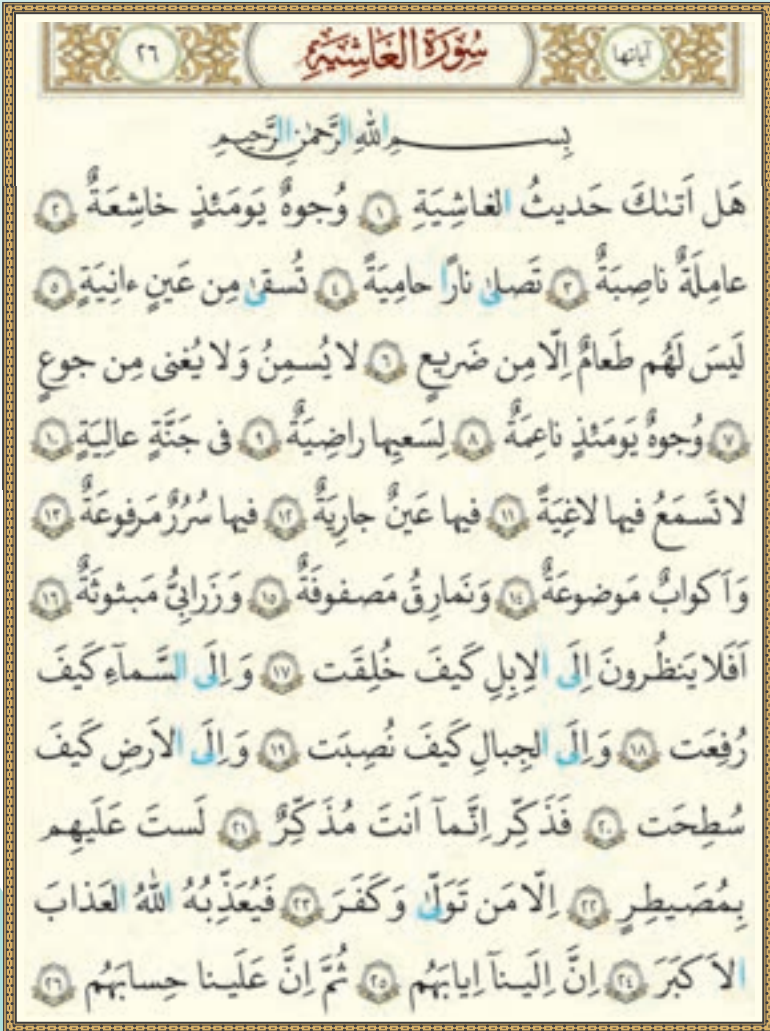 آیاتها سُورَةُ الغَاشِيَةِ ٢٦
بِسـمِ اللّٰهِ الرَّحمٰنِ الرَّحيمِ
هَل اَتىٰكَ حَديثُ الغاشِيَةِ ١ وُجوهٌ يَومَئِذٍ خاشِعَةٌ ٢
عامِلَةٌ ناصِبَةٌ ٣ تَصلىٰ نارًا حامِيَةً ٤ تُسقىٰ مِن عَينٍ ءانِيَةٍ ٥
لَيسَ لَهُم طَعامٌ اِلّا مِن ضَريعٍ ٦ لا يُسمِنُ وَلا يُغنى مِن جوعٍ
٧ وُجوهٌ يَومَئِذٍ ناعِمَةٌ ٨ لِسَعيِها راضِيَةٌ ٩ فى جَنَّةٍ عالِيَةٍ ١٠
لا تَسمَعُ فيها لاغِيَةً ١١ فيها عَينٌ جارِيَةٌ ١٢ فيها سُرُرٌ مَرفوعَةٌ ١٣
وَاَكوابٌ مَوضوعَةٌ ١٤ وَنَمارِقُ مَصفوفَةٌ ١٥ وَزَرابِىُّ مَبثوثَةٌ ١٦
اَفَلا يَنظُرونَ اِلَى الاِبِلِ كَيفَ خُلِقَت ١٧ وَاِلَى السَّماۤءِ كَيفَ
رُفِعَت ١٨ وَاِلَى الجِبالِ كَيفَ نُصِبَت ١٩ وَاِلَى الاَرضِ كَيفَ
سُطِحَت ٢٠ فَذَكِّر اِنَّماۤ اَنتَ مُذَكِّرٌ ٢١ لَستَ عَلَيهِم
بِمُصَيطِرٍ ٢٢ اِلّا مَن تَوَلّىٰ وَكَفَرَ ٢٣ فَيُعَذِّبُهُ اللّٰهُ العَذابَ
الاَكبَرَ ٢٤ اِنَّ اِلَيناۤ اِيابَهُم ٢٥ ثُمَّ اِنَّ عَلَينا حِسابَهُم ٢٦